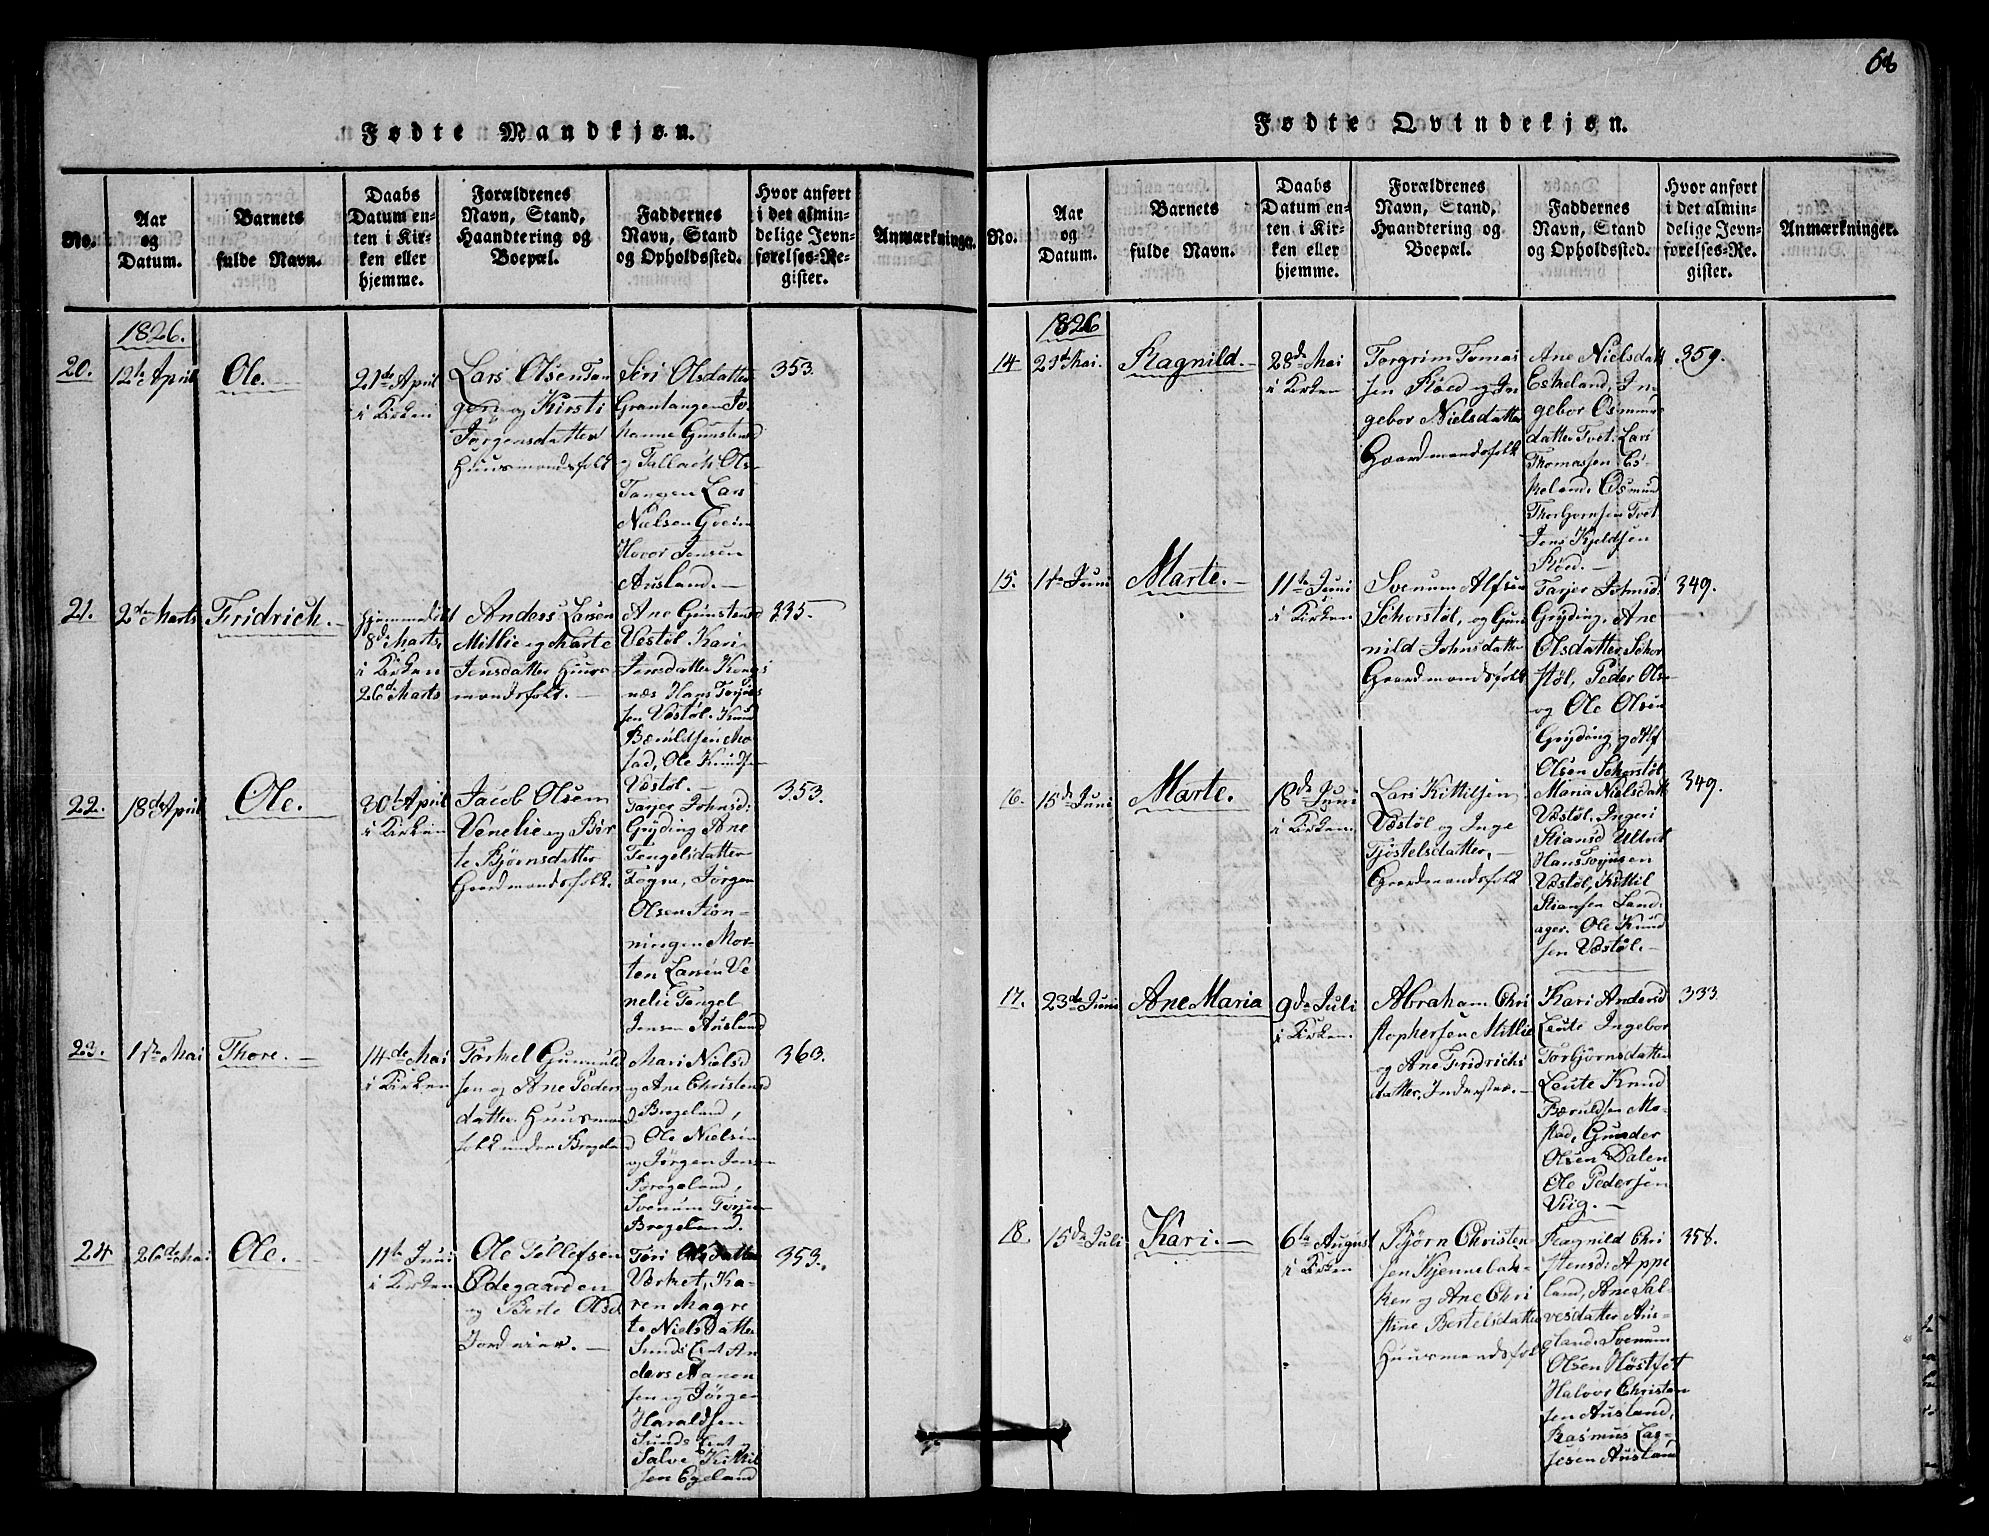 68
Fødte Mandkjøn.
No.
Aar
og
Datum.
Barnets
fulde Navn.
Daabs
Datum en-
ten i Kir-
ken eller
hjemme.
Forældrenes
Navn, Stand,
Haandtering og
Boepæl.
Faddernes
Navn, Stand
og Opholdssted.
Hvor anført
i det almin-
delige Jevn-
førelses-Re-
gister.
Anmærkninger.
1826.
20.
12te April
Ole.
21de April
i Kirken
Lars Olsen Tan
gen og Kirsti
Jørgensdatter
Huusmandsfolk
Siri Olsdatter
Grantangen Jo-
hanne Gunstensd
og Tallach Ols-
Tangen Lars
Nielsen
Hovor Jensen
Ausland.
353.
21.
2den Marts
Fridrich.
Hjemmedøbt
8de Marts,
i Kirken
26de Marts
Anders Larsen
Millie og Marte
Jensdatter Huus-
mandsfolk.
Ane Gunstensd
Vestøl, Kari
Jensdatter Kongs
næs Hans Torjus
sen Vestøl. Knud
Bæruldsen Mo-
stad, Ole Knudsen
Vestøl.
335
22.
18de April
Ole.
30te April
i Kirken
Jacob Olsen
Venelie og Bir
te Bjørnsdatter
Gaardmandsfolk.
Tarjer Johnsd:
Gryding Ane
Tengelsdatter
Togne, Jørgen
Olsen Røn-
ningen Mor-
ten Larsen Ve
nelie Tengel
Jensen Ausland
353.
23.
1ste Mai
Thore.
14de Mai
i Kirken
Torkel Gunnuld
sen og Ane Peders
datter. Huusmand
folk under Brogeland
Mari Nielsd
og Ane Christensd
Brogeland,
Ole Nielsen
og Jørgen Jensen
Brogeland,
Svenum Torjusen
Brogeland.
363.
24
26de Mai
Ole.
11te Juni
i Kirken
Ole Tellefsen
Ødegaarden
og Berte Olsd
Jordeier.
Teri Olsdatter
Værket, Ka-
ren Magre
te Nielsdatter
Sunds Eiet An
ders Aanen
sen og Jørgen
Haraldsen
Sunds Eiet
Salve Kittil
sen Egeland
353.
Fødte Qvindekjøn.
No.
Aar
og
Datum.
Barnets
fulde Navn.
Daabs
Datum en-
ten i Kir-
ken eller
hjemme.
Forældrenes
Navn, Stand,
Haandtering og
Boepæl.
Faddernes
Navn, Stand
og Opholdssted.
Hvor anført
i det almin-
delige Jevn-
førelses-Re-
gister.
Anmærkninger.
1826
14
21de Mai.
Ragnild.
28de Mai
i Kirken
Torgrim Tomas
sen Røed og In
gebor Nielsdatter
Gaardmandsfolk
Ane Nielsdatt
Eskeland, In
gebor Osmunds
datter Tvet. Lars
Thomassen Es-
keland. Osmund
Thorbjornsen Tvet
Jens Kjeldsen
Røed.
359.
15.
1ste Juni
Marte.
11te Juni
i Kirken
Svenum Alfsen
Schorstøl, og Gun
nild Johnsdatter
Gaardmandsfolk
Tarjer Johnsd
Gryding, Ane
Olsdatter Schor
støl, Peder Ols-
og Ole Olsen
Gryding og Alf
Olsen Schorstøl
349.
16.
15de Juni
Marte.
18de Juni
i Kirken.
Lars Kittilsen
Vestøl og Inge
Tjøstelsdatter,
Gaardmandsfolk
Maria Nielsdatt
Vestøl. Ingeri
Stiansd Ulltvet
Hans Torjusen
Vestøl, Kittil
Stiansen Land-
ager. Ole Knud
sen Vestøl.
349.
17.
23de Juni
Ane Maria
9de Juli
i Kirken
Abraham Chri
stophersen Millie
og Ane Fridrichs
datter, Inderster.
Kari Andersd
Leute Ingebor
Torbjørnsdatter
Leute Knud
Bæruldsen Mo-
stad, Gunder
Olsen Dalen
Ole Pedersen
Viig.
333.
18.
15de Juli
Kari.
6te August
i Kirken
Bjørn Christen
sen Kjennebak-
ken og Ane Chri
stine Bertelsdatter
Huusmandsfolk
Ragnild Chri
stensd: Appe
land, Ane Sal-
vesdatter Aus-
land. Svenum
Olsen Høstfet
Halvor Christen
sen Ausland,
Rasmus Las-
sesen Ausland
358.